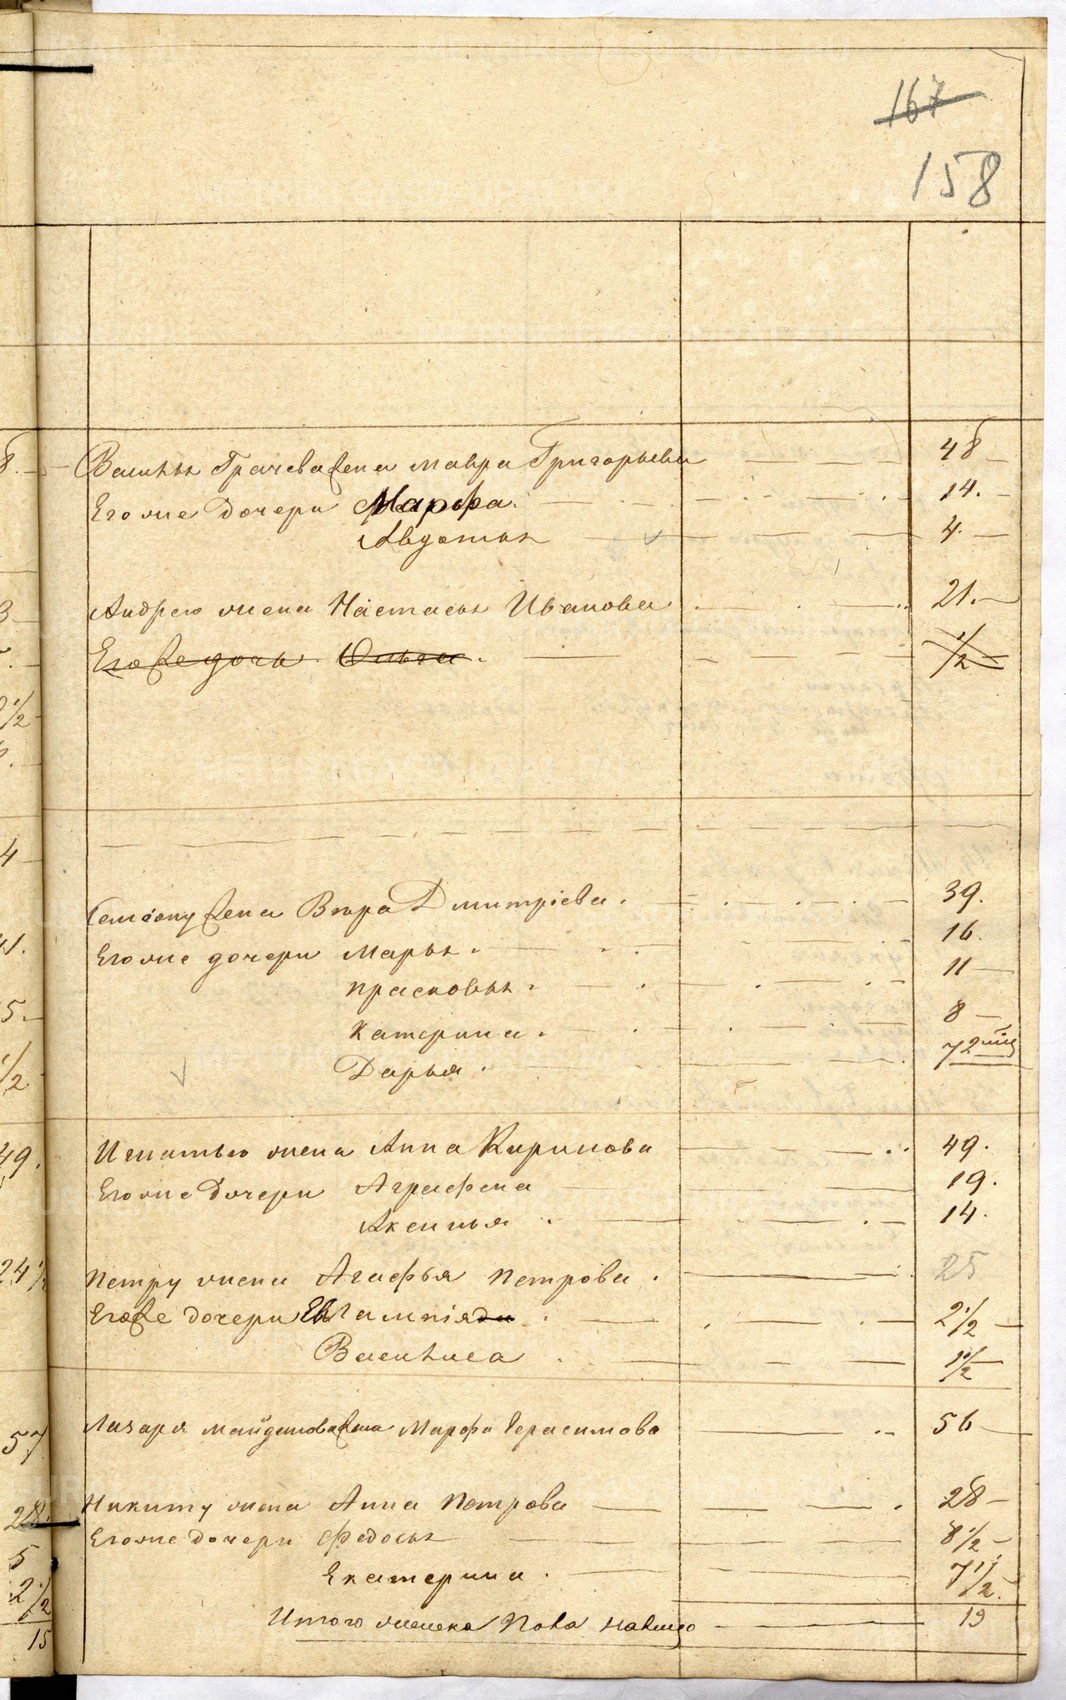 167
158
Василья Грачева жена мавра Григорьева 48
Его же дочери Марфа 14.
Авдотья 4.
Андрею жена Настасья Иванова 21.
Его же дочь Ольга. 1/2
жена Вера Дмитріева. 39.
Его же дочери Марья. 16.
прасковья. 11
Катерина. 8
Дарья. 7
Игнатью жена Анна Кирилова 49.
Его же дочери Аграфена 19.
Аксинья 14.
петру жена Агафья петрова. 25
Его же дочери Евлампія 2 1/2
Василиса 1/2
Лазаря жена Марфа Герасимова 56
Никиту жена Анна петрова 28
Его же дочери федосья 8 1/2
Екатерина. 7 1/2
Итого женска пола 19
8.
3
2 1/2
4
41.
5.
1/2
49.
24 1/2
57
28.
5
2 1/2
15